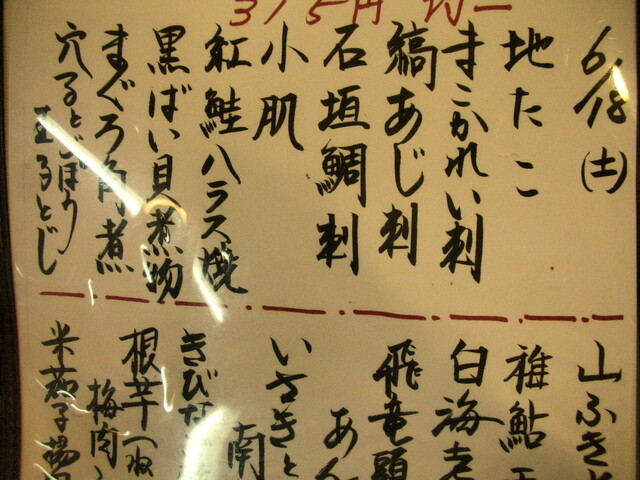 315円均一
6/18(土)
地たこ
まこかれい刺
縞あじ刺
石垣鯛刺
小肌
紅鮭ハラス焼
黒ばい貝煮物
まぐろ角煮
穴子とごぼう
玉子とじ
山ふき
稚鮎
白海老
飛竜頭
あん
いさきと
南
きびな
根芋
梅肉
米茄子揚